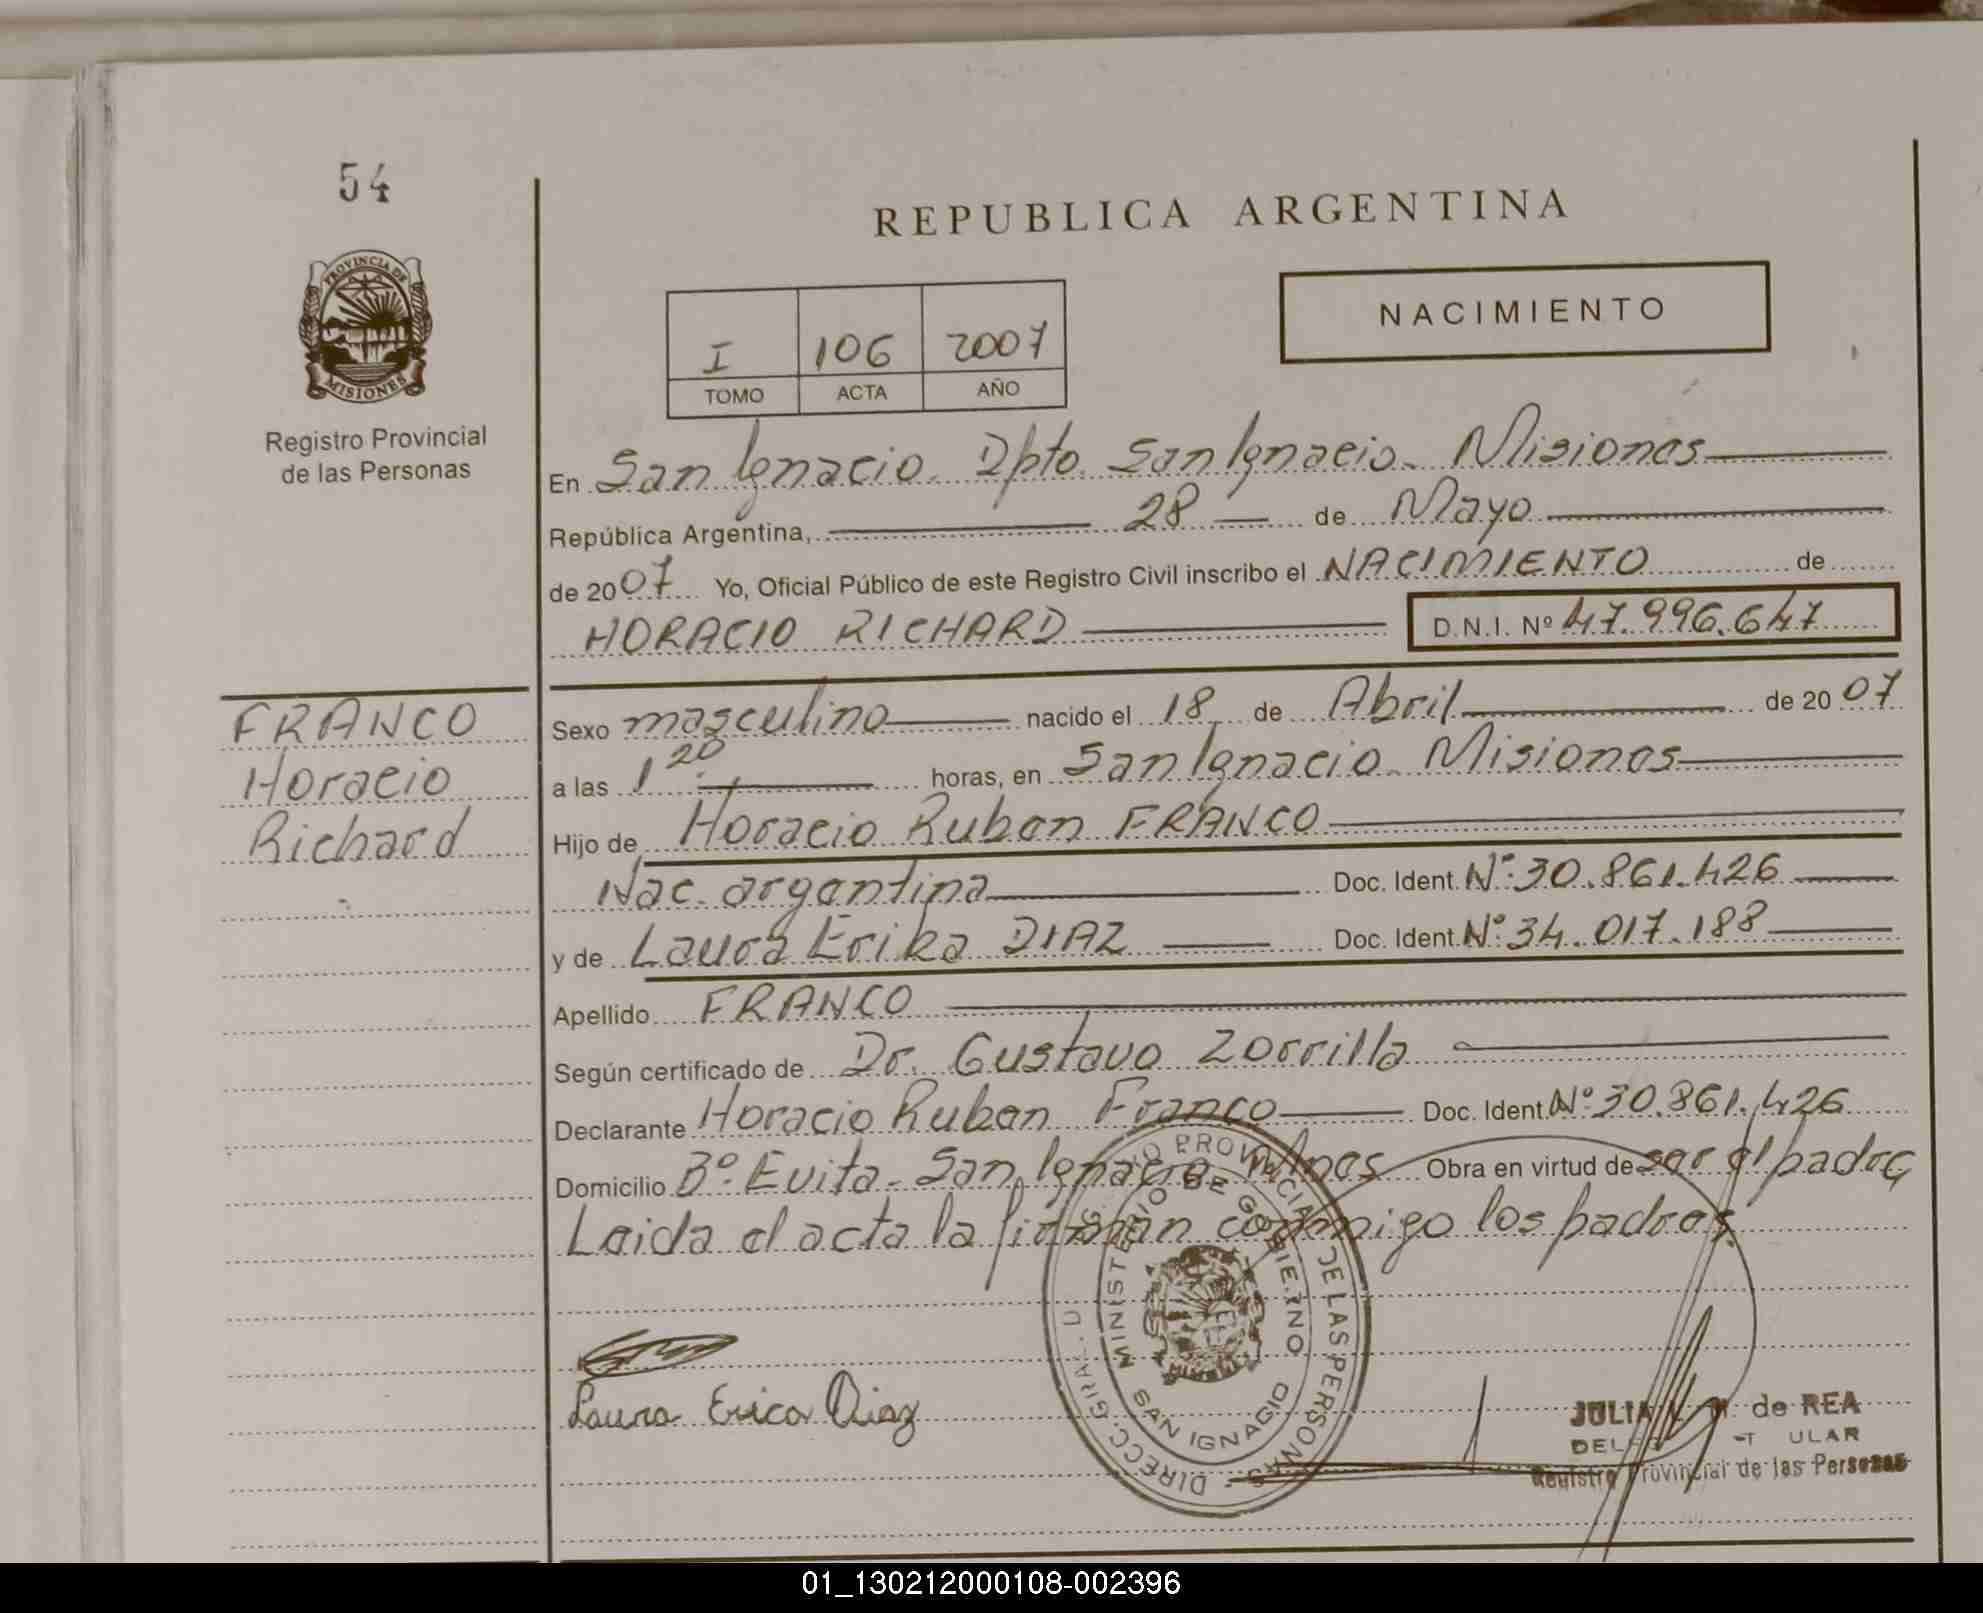 54
REPUBLICA ARGENTINA
PROVINCIA DE
MISIONES
Registro Provincial
de las Personas
I 106 2007
TOMO ACTA AÑO
NACIMIENTO
En San Ignacio. Dpto. San Ignacio. Misiones
República Argentina, 28 de Mayo
de 2007 Yo, Oficial Público de este Registro Civil inscribo el NACIMIENTO de
HORACIO RICHARD D.N.I. Nº 47.996.647
FRANCO
Horacio
Richard
Sexo masculino nacido el 18 de Abril de 2007
a las 1 20 horas, en San Ignacio. Misiones
Hijo de Horacio Ruben FRANCO
Nac. argentina Doc. Ident. Nº 30.861.426
y de Laura Erika DIAZ Doc. Ident. Nº 34.017.188
Apellido FRANCO
Según certificado de Dr. Gustavo Zorrilla
Declarante Horacio Ruben Franco Doc. Ident. Nº 30.861.426
Domicilio Bº Evita. San Ignacio. Mnes Obra en virtud de ser el padre
Leida el acta la firman conmigo los padres.
Laura Erica Diaz
PROVINCIAL DE LAS PERSONAS
DIRECC. GRAL.
MINISTERIO DE GOBIERNO
SAN IGNACIO
JULIA de REA
Registro Provincial de las Personas
01_130212000108-002396